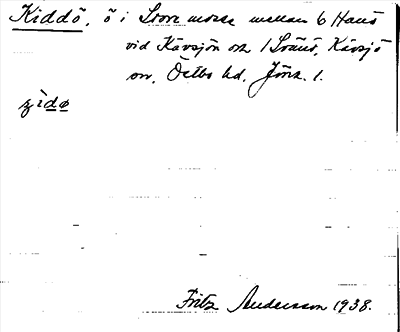 Kiddö, ö i Store mosse mellan 6 Hans
vid Kävsjön och 1 Svänö, Kävsjö
sn, Östbo hd. Jönk. l.
Fritz Andersson 1938.